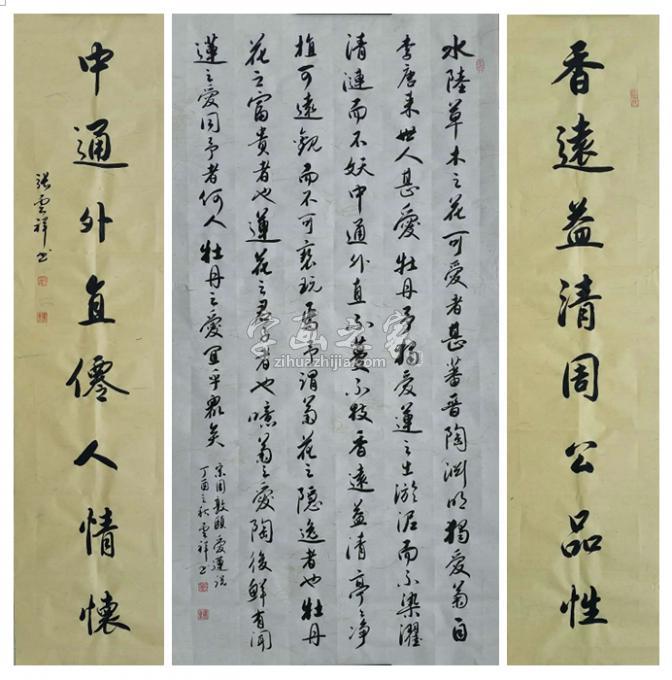 香遠益清周公品性
水陸草木之花可愛者甚蕃晉陶淵明獨愛菊自
李唐来世人甚愛牡丹予獨愛蓮之出淤泥而不染濯
清漣而不妖中通外直不蔓不枝香遠益清亭亭淨
植可遠觀而不可褻玩焉予謂菊花之隱逸者也牡丹
花之富貴者也蓮花之君子者也噫菊之愛陶後鮮有聞
蓮之愛同予者何人牡丹之愛宜乎衆矣
宋周敦頤愛蓮說
丁酉之秋雲祥書
中通外直僊人情懷
張雲祥書
字画之家
zihuazhijia.com